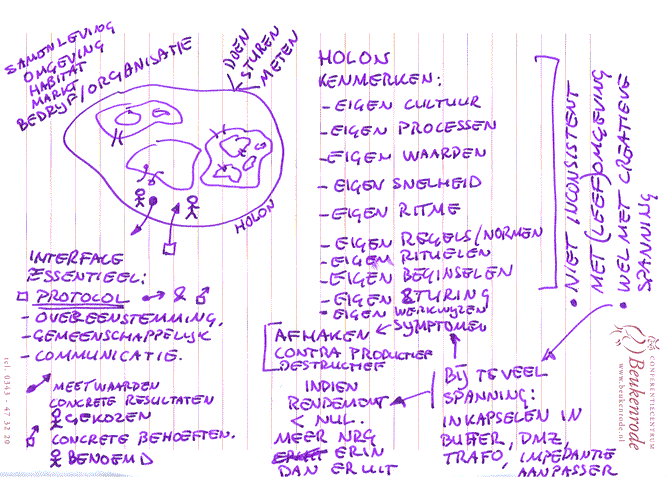 SAMENLEVING
OMGEVING
HABITAT
MARKT
BEDRIJF/ORGANISATIE
DOEN
STUREN
METEN
HOLON
INTERFACE
ESSENTIEEL:
PROTOCOL & 
- OVEREENSTEMMING.
- GEMEENSCHAPPELIJK
- COMMUNICATIE.
MEETWAARDEN
CONCRETE RESULTATEN
GEKOZEN
CONCRETE BEHOEFTEN.
BENOEMD
HOLON
KENMERKEN:
- EIGEN CULTUUR
- EIGEN PROCESSEN
- EIGEN WAARDEN
- EIGEN SNELHEID
- EIGEN RITME
- EIGEN REGELS/NORMEN
- EIGEN RITUELEN
- EIGEN BEGINSELEN
- EIGEN STURING
• EIGEN WERKWIJZEN
• NIET INCONSISTENT
MET (LEEF)OMGEVING
• WEL MET CREATIEVE
SPANNING
AFHAKEN ← SYMPTOMEN
CONTRA PRODUCTIEF
DESTRUCTIEF
INDIEN
RENDEMENT
< NUL.
MEER NRG
ERIN
DAN ERUIT
BIJ TEVEEL
SPANNING:
INKAPSELEN IN
BUFFER, DMZ,
TRAFO, IMPEDANTIE
AANPASSER
CONFERENTIECENTRUM
Beukenrode
www.beukenrode.nl
tel. 0343 - 47 32 20